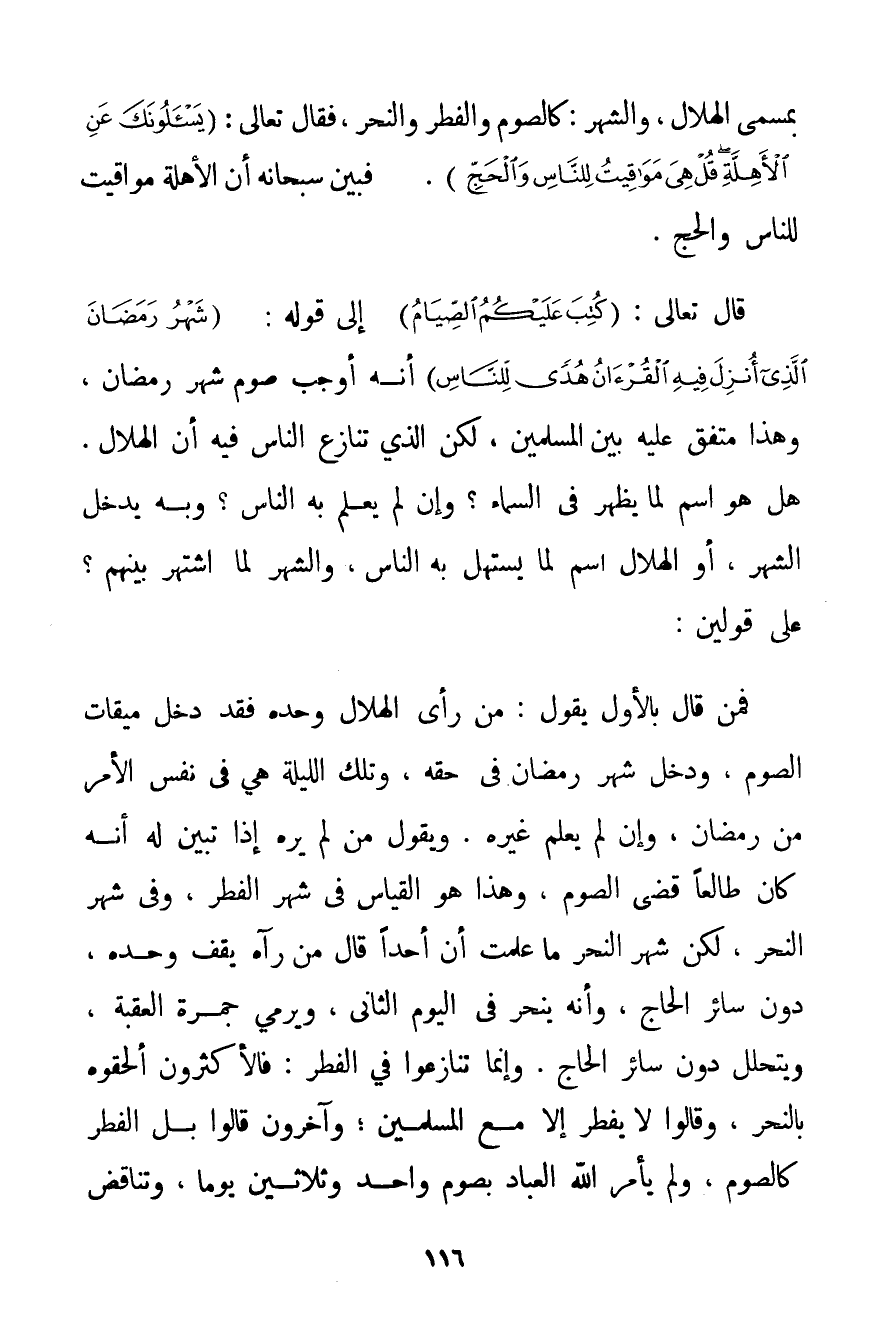 بمسمى الهلال ، والشهر : كالصوم والفطر والنحر ، فقال تعالى : (يَسْـَٔلُونَكَ عَنِ
ٱلْأَهِلَّةِ ۖ قُلْ هِىَ مَوَٰقِيتُ لِلنَّاسِ وَٱلْحَجِّ ) . فبين سبحانه أن الأهلة مواقيت
للناس والحج .
قال تعالى : (كُتِبَ عَلَيْكُمُ ٱلصِّيَامُ) إلى قوله : (شَهْرُ رَمَضَانَ
ٱلَّذِىٓ أُنزِلَ فِيهِ ٱلْقُرْءَانُ هُدًى لِّلنَّاسِ) أنـه أوجب صوم شهر رمضان ،
وهذا متفق عليه بين المسلمين ، لكن الذي تنازع الناس فيه أن الهلال .
هل هو اسم لما يظهر فى السماء ؟ وإن لم يعـلم به الناس ؟ وبـه يدخل
الشهر ، أو الهلال اسم لما يستهل به الناس ، والشهر لما اشتهر بينهم ؟
على قولين :
فمن قال بالأول يقول : من رأى الهلال وحده فقد دخل ميقات
الصوم ، ودخل شهر رمضان فى حقه ، وتلك الليلة هي فى نفس الأمر
من رمضان ، وإن لم يعلم غيره . ويقول من لم يره إذا تبين له أنـه
كان طالعاً قضى الصوم ، وهذا هو القياس فى شهر الفطر ، وفى شهر
النحر ، لكن شهر النحر ما علمت أن أحداً قال من رآه يقف وحـده ،
دون سائر الحاج ، وأنه ينحر فى اليوم الثانى ، ويرمي جمـرة العقبة ،
ويتحلل دون سائر الحاج . وإنما تنازعوا في الفطر : فالأكثرون ألحقوه
بالنحر ، وقالوا لا يفطر إلا مـع المسلمـين ؛ وآخرون قالوا بـل الفطر
كالصوم ، ولم يأمر الله العباد بصوم واحـد وثلاثـين يوما ، وتناقض
١١٦